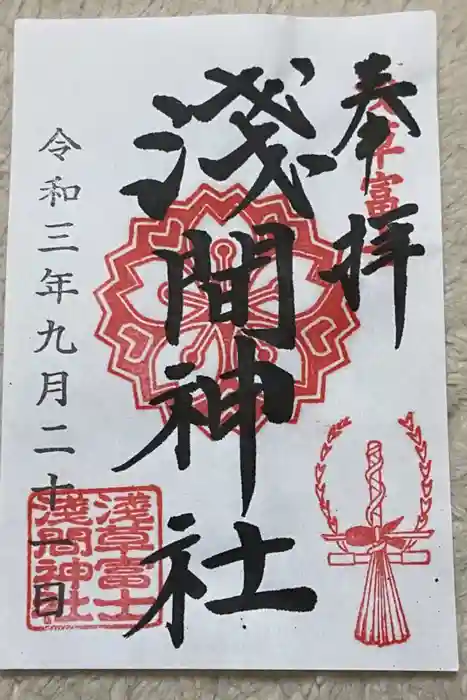 奉拝
浅草富
淺間神社
令和三年九月二十一日
淺草富士
淺間神社